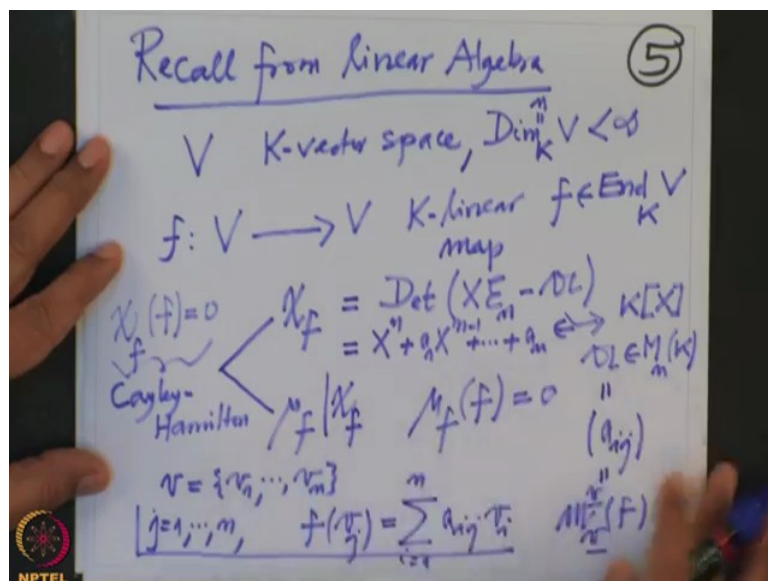 Recall from linear Algebra ⑤
V K-vector space, Dim_K V < ∞
n
॥
f : V ⟶ V K-linear map f ∈ End_K V
χ_f(f) = 0
Cayley-Hamilton
χ_f = Det (X E_n - 𝔄) ∈ K[X]
= X^n + a_1 X^{n-1} + ... + a_n
𝔄 ∈ M_n(K)
μ_f | χ_f μ_f(f) = 0
॥
(a_ij)
v = {v_1, ..., v_n}
॥
j = 1, ..., n, f(v_j) = \sum_{i=1}^{n} a_ij v_i M^v_v(f)
NPTEL